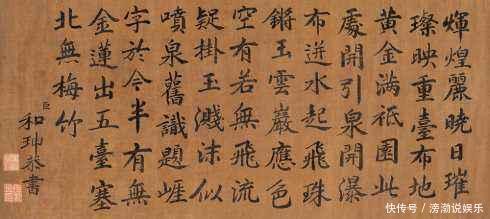 輝煌麗曉日璀
璨映重臺布地
黃金滿祇園此
處開引泉開瀑
布迸水起飛珠
鏘玉雲巖應色
空有若無飛流
疑掛玉濺沫似
噴泉舊識題崕
字於今半有無
金蓮出五臺塞
北無梅竹
臣和珅恭書
快传号 / 滂渤说娱乐